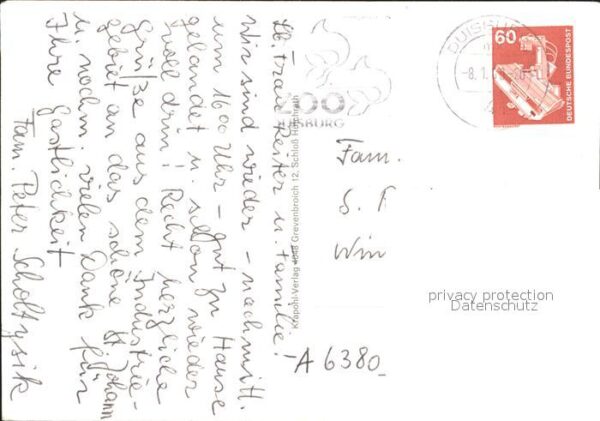 Lb. Frau Reiter u. Familie!
Wir sind wieder - nachmitt.
um 16 00 Uhr - gut zu Hause
gelandet u. schon wieder
voll drin! Recht herzliche
Grüße aus dem Industrie-
gebiet an das schöne St. Johann
u. nochm. vielen Dank für
Ihre Gastlichkeit
Fam. Peter Scholtysik
Krapohl-Verlag 4048 Grevenbroich 12, Schloß Hülchrath
ZOO
DUISBURG
DUISBURG
-8.1.
60
DEUTSCHE BUNDESPOST
Fam.
S. F
Win
privacy protection
Datenschutz
-A 6380